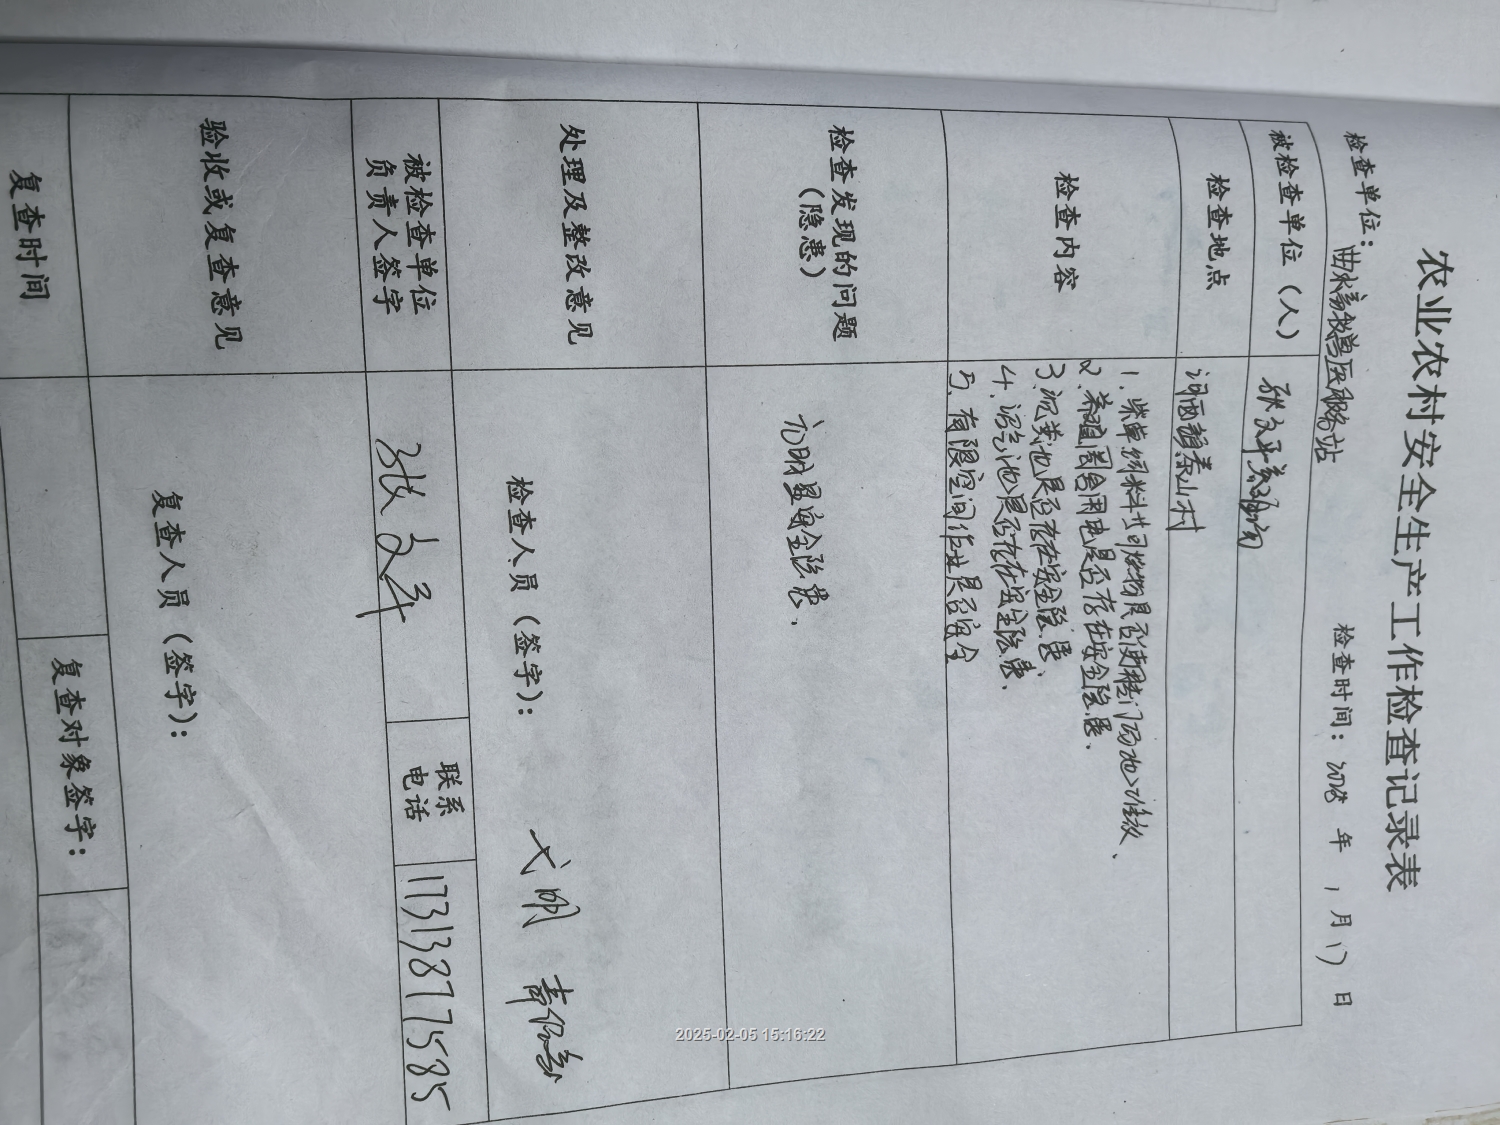 农业农村安全生产工作检查记录表
检查单位：曲水畜牧兽医服务站 检查时间：2025 年 1 月 17 日
被检查单位（人） 张文平养鸡
检查地点 村
检查内容
1、柴草饲料等可燃物是否使用 场地堆放、
2、养殖圈舍用电是否存在安全隐患、
3、沉粪池是否存在安全隐患、
4、沼气池是否存在安全隐患、
5、有限空间作业是否安全
检查发现的问题
（隐患）
无明显安全隐患.
处理及整改意见
检查人员（签字）： 明
被检查单位
负责人签字
张文平
联系
电话
17313877585
验收或复查意见
复查人员（签字）：
复查时间
复查对象签字：
2025-02-05 15:16:22